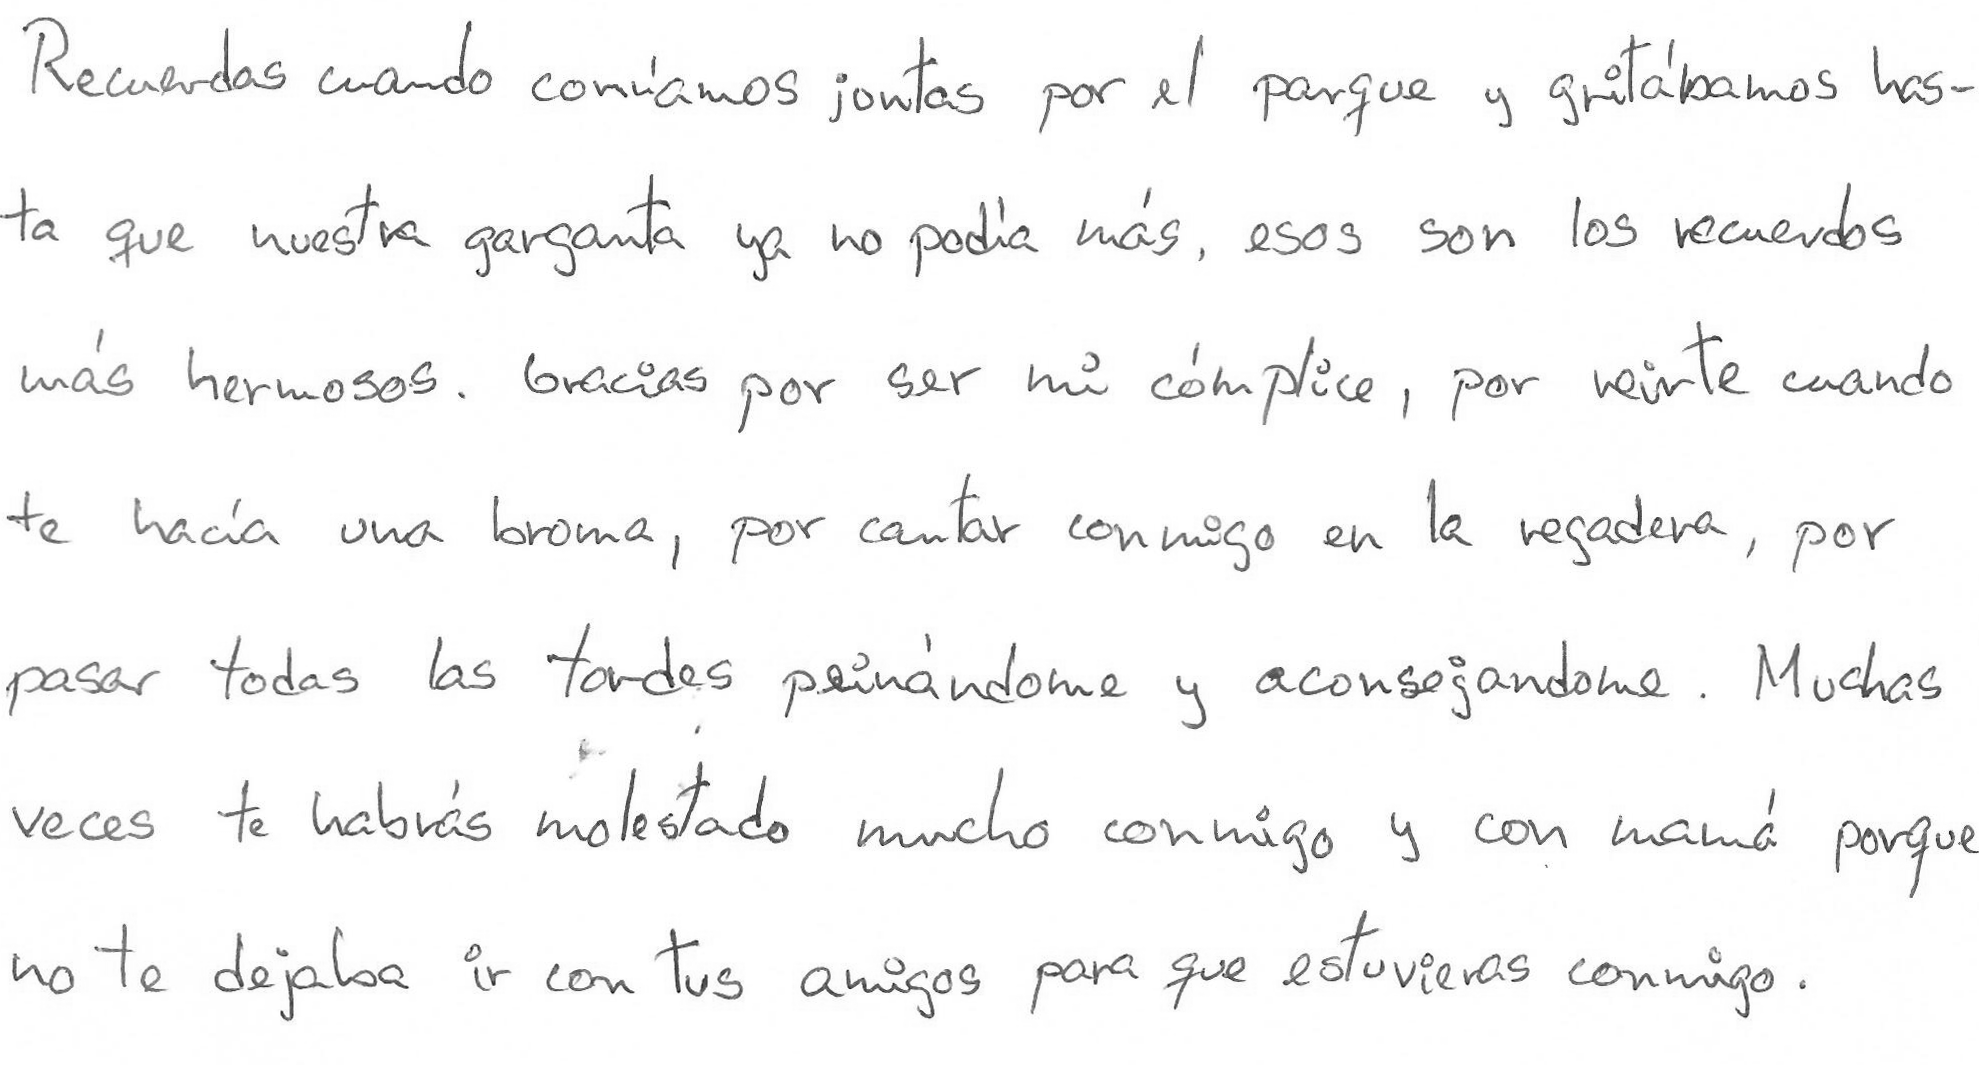 Recuerdas cuando corríamos juntas por el parque y gritábamos has-
ta que nuestra garganta ya no podía más, esos son los recuerdos
más hermosos. Gracias por ser mi cómplice, por reirte cuando
te hacía una broma, por cantar conmigo en la regadera, por
pasar todas las tardes peinándome y aconsejandome. Muchas
veces te habrás molestado mucho conmigo y con mamá porque
no te dejaba ir con tus amigos para que estuvieras conmigo.